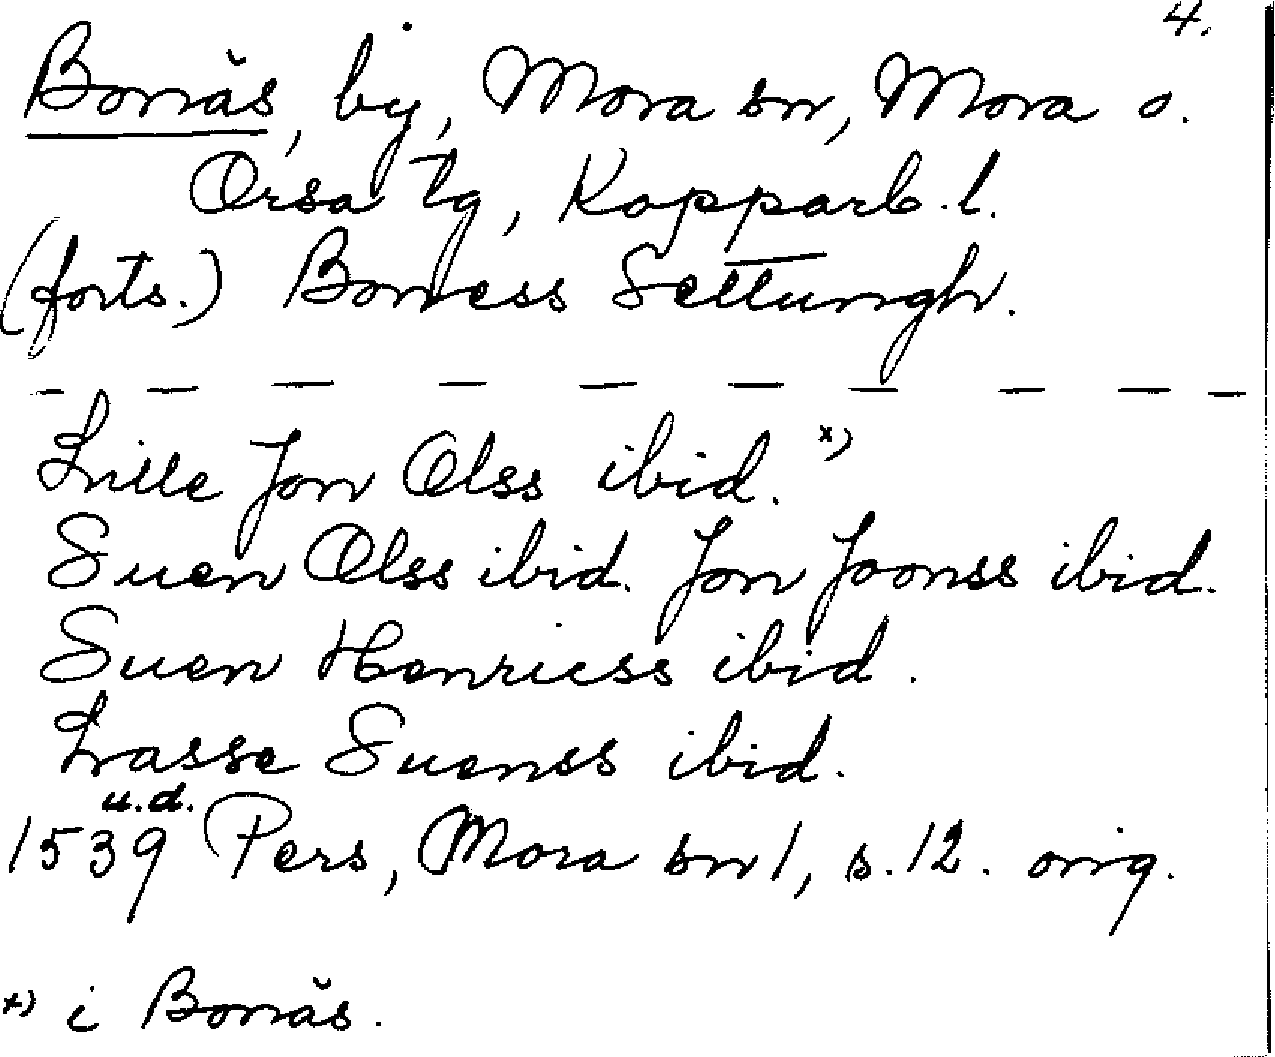 4.
Bonäs, by, Mora sn, Mora o.
Orsa tg, Kopparb. l.
(forts.) Boness Settungh.
— — — — — — — — — —
Lille Jon Olss ibid. x)
Suen Olss ibid. Jon Joonss ibid.
Suen Henricss ibid.
Lasse Suenss ibid.
u.d.
1539 Pers, Mora sn 1, s. 12. orig.
x) i Bonäs.